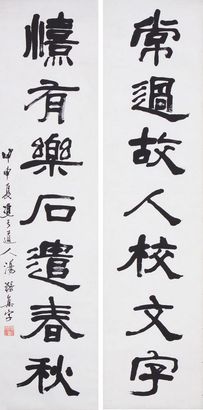 常過故人校文字
憘有樂石遣春秋
甲申夏道人集字